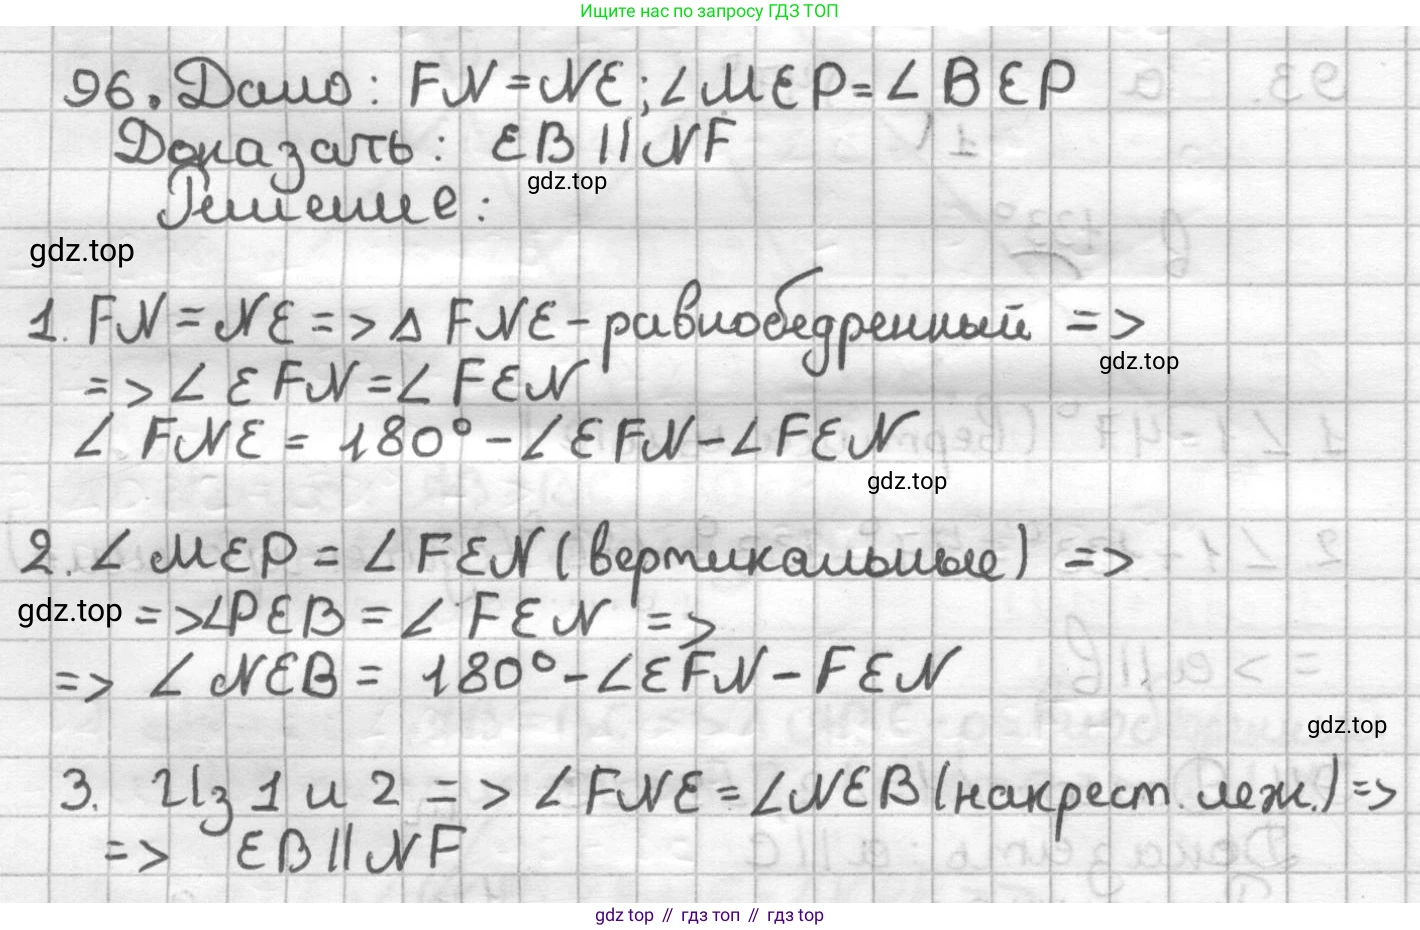 Ищите нас по запросу ГДЗ ТОП
96. Дано: FN = NE; ∠MEP = ∠BEP
Доказать: EB || NF
gdz.top
Решение:
gdz.top
1. FN = NE => Δ FNE - равнобедренный =>
gdz.top
=> ∠EFN = ∠FEN
∠FNE = 180° - ∠EFN - ∠FEN
gdz.top
2. ∠MEP = ∠FEN (вертикальные) =>
gdz.top => ∠PEB = ∠FEN =>
=> ∠NEB = 180° - ∠EFN - FEN
gdz.top
3. Из 1 и 2 => ∠FNE = ∠NEB (накрест. леж.) =>
=> EB || NF
gdz top // гдз топ // гдз top